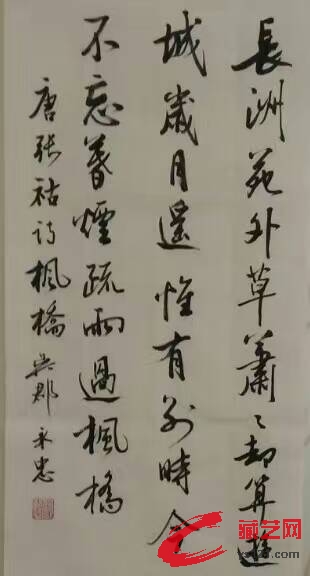 長洲苑外草蕭〻却算遊
城歲月遥惟有别時今
不忘暮煙疏雨過楓橋
唐張祜詩楓橋 吳郡永忠
藏艺网